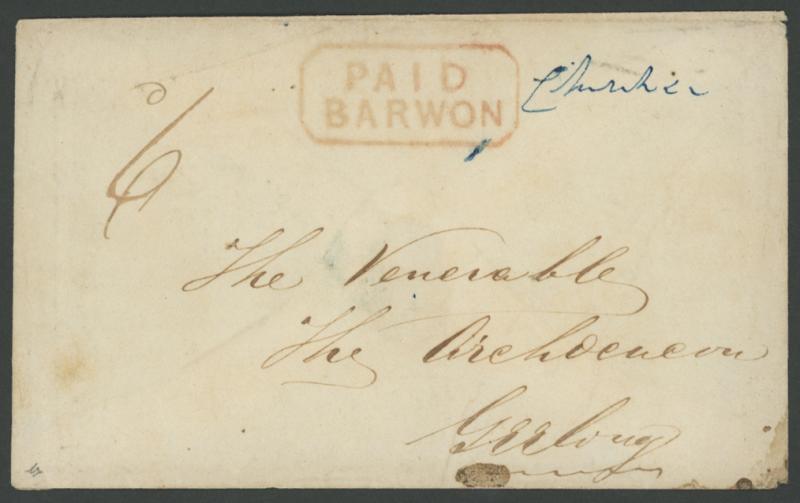 PAID
BARWON
6
The Venerable
The Archdeacon
Geelong